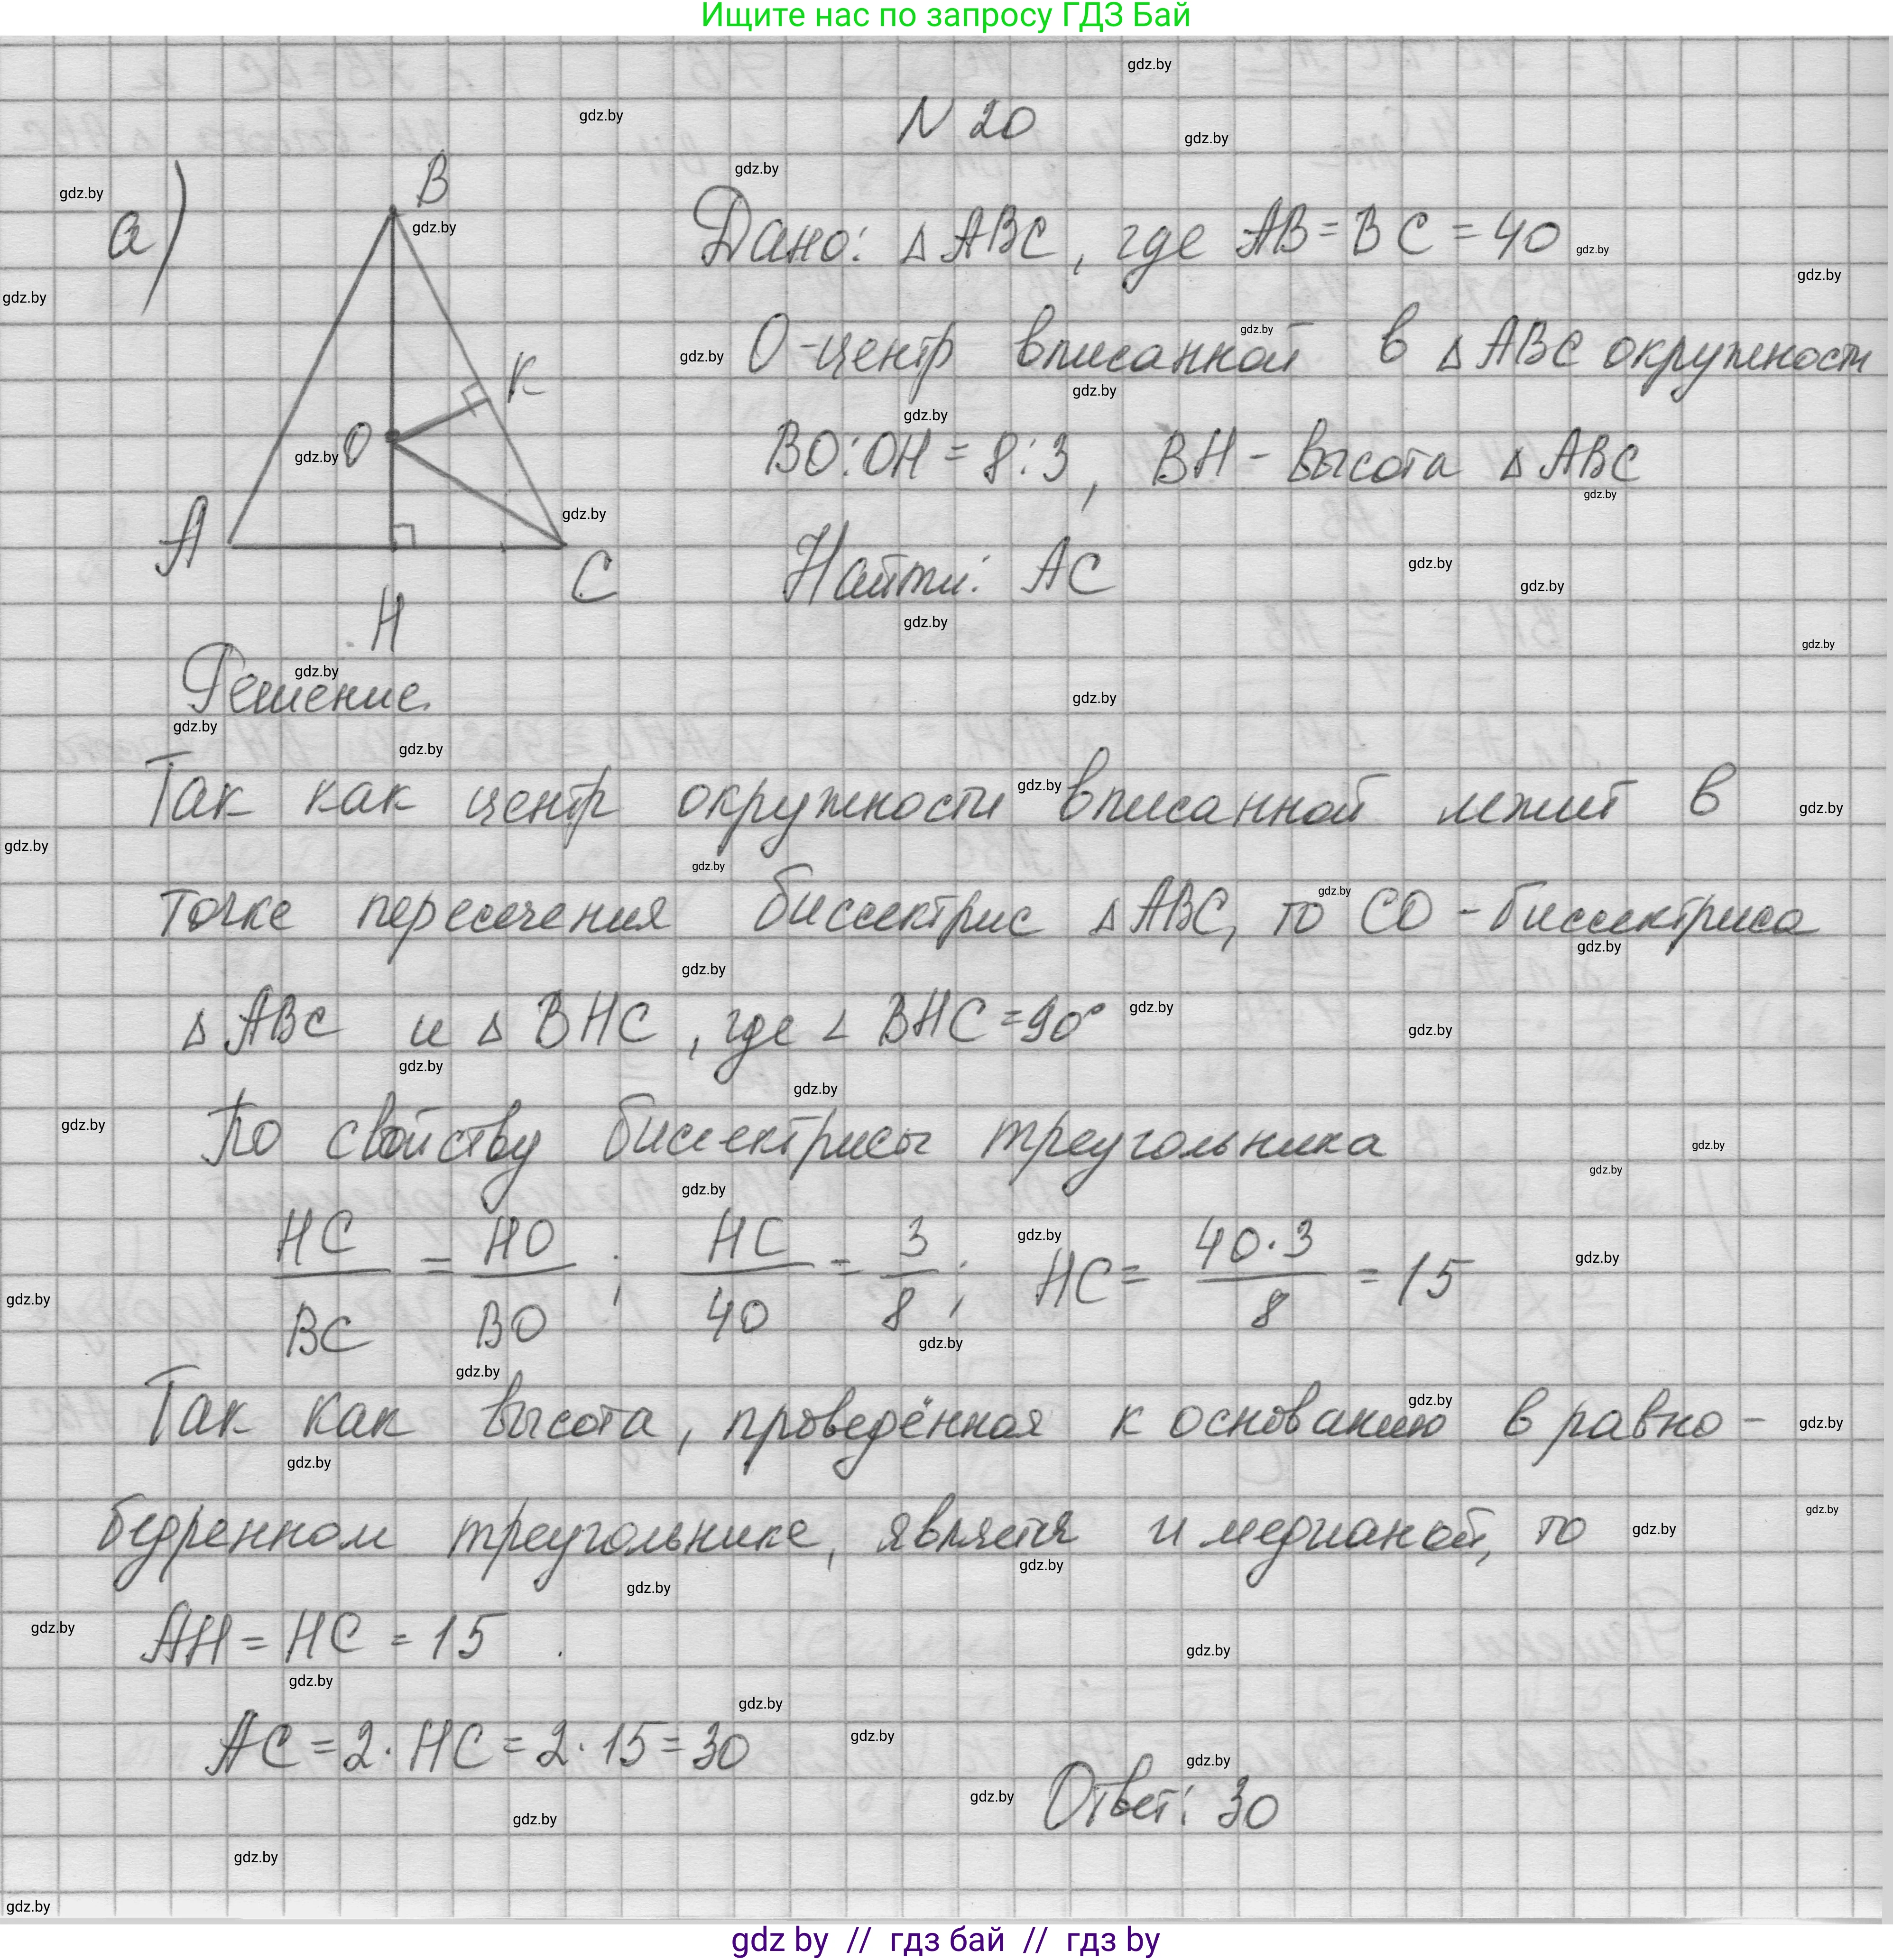 Ищите нас по запросу ГДЗ Бай
N 20
а)
Дано: △ ABC, где AB = BC = 40
O - центр вписанной в △ ABC окружности
BO : OH = 8 : 3, BH - высота △ ABC
Найти: AC
B
K
O
A
C
H
Решение.
Так как центр окружности вписанной лежит в
точке пересечения биссектрис △ ABC, то CO - биссектриса
△ ABC и △ BHC, где ∠ BHC = 90°
По свойству биссектрисы треугольника
HC/BC = HO/BO ; HC/40 = 3/8 ; HC = 40·3/8 = 15
Так как высота, проведённая к основанию в равно-
бедренном треугольнике, является и медианой, то
AH = HC = 15.
AC = 2 · HC = 2 · 15 = 30
Ответ: 30
gdz.by
gdz by // гдз бай // гдз by